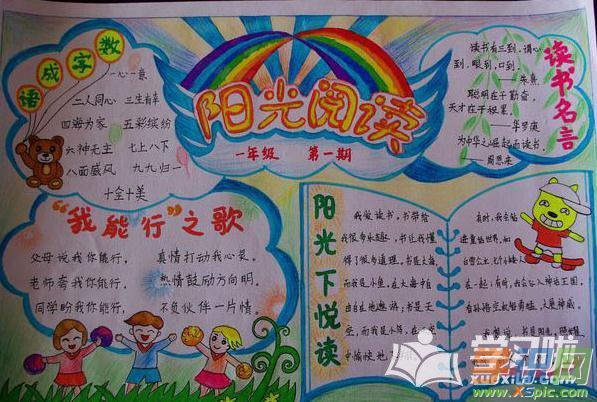 数字成语
一心一意
二人同心 三生有幸
四海为家 五彩缤纷
六神无主 七上八下
八面威风 九九归一
十全十美
阳光阅读
一年级 第一期
读书名言
读书有三到,谓心
到,眼到,口到。
——朱熹
聪明在于勤奋,
天才在于积累。
——华罗庚
为中华之崛起而读书。
——周恩来
“我能行”之歌
父母说我你能行, 真情打动我心灵。
老师夸我你能行, 热情鼓励方向明。
同学盼我你能行, 不负伙伴一片情。
阳光下悦读
我爱读书,书带给
我很多乐趣,书让我懂
得了很多道理。书是大海
而我是小鱼,在大海中自
由自在地遨游;书是天
空,而我是小鸟,在
中愉快地
有时,我会钻
进童话世界,和
白雪公主、七个小矮人
在一起;有时,我会
看孙悟空
书是阳光,照耀
学习啦
xuexila.com
www.XSpic.com